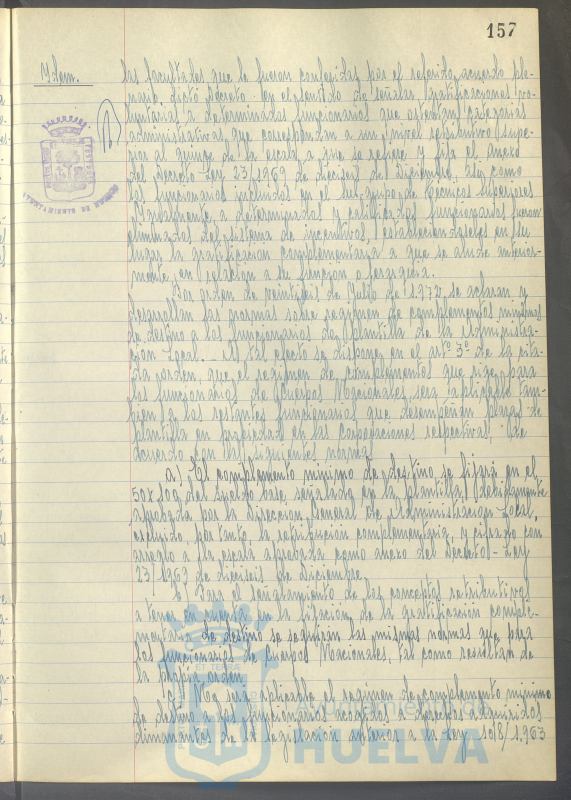 157
Idem.
las facultades que le fueron conferidas por el referido acuerdo ple-
nario, dictó Decreto en el sentido de señalar gratificaciones vo-
luntarias a determinados funcionarios que ostentan categorías
administrativas que correspondan a un nivel retributivo supe-
rior al quince de la escala a que se refiere y fija el anexo
del Decreto-Ley 23/1969 de dieciseis de Diciembre, asy como
los funcionarios incluidos en el subgrupo de Técnicos Superiores
y a determinados y calificados funcionarios fueron
eliminados del sistema de incentivos, estableciendoseles en su
lugar la gratificación complementaria a que se alude anterior-
mente, en relación a su función o jerarquía.
Por orden de veintiseis de Julio de 1.972 se aclaran y
desarrollan las normas sobre régimen de complementos mínimos
de destino a los funcionarios de plantilla de la Administra-
ción Local. - A tal efecto se dispone en el artº 3º de la cita-
da orden, que el régimen de complementos que rige para
los funcionarios de Cuerpos Nacionales, será aplicable tam-
bién a los restantes funcionarios que desempeñen plazas de
plantilla en propiedad en las Corporaciones respectivas, de
acuerdo con las siguientes normas
a) El complemento mínimo de destino se fijará en el
50 x 100 del sueldo base señalado en la plantilla, debidamente
aprobada por la Dirección General de Administración Local,
excluido por tanto, la retribución complementaria, y cifrado con
arreglo a la escala aprobada como anexo del Decreto-Ley
23/1969 de dieciseis de Diciembre.
b) Para el señalamiento de los conceptos retributivos
a tener en cuenta en la fijación de la gratificación comple-
mentaria de destino se seguirán las mismas normas que para
los funcionarios de Cuerpos Nacionales, tal como resultan de
la propia orden
c) No será aplicable el régimen de complemento mínimo
de destino a los funcionarios acogidos a derechos adquiridos
dimanantes de la legislación anterior a la Ley 108/1.963
AYUNTAMIENTO DE HUELVA
Ayuntamiento de
HUELVA